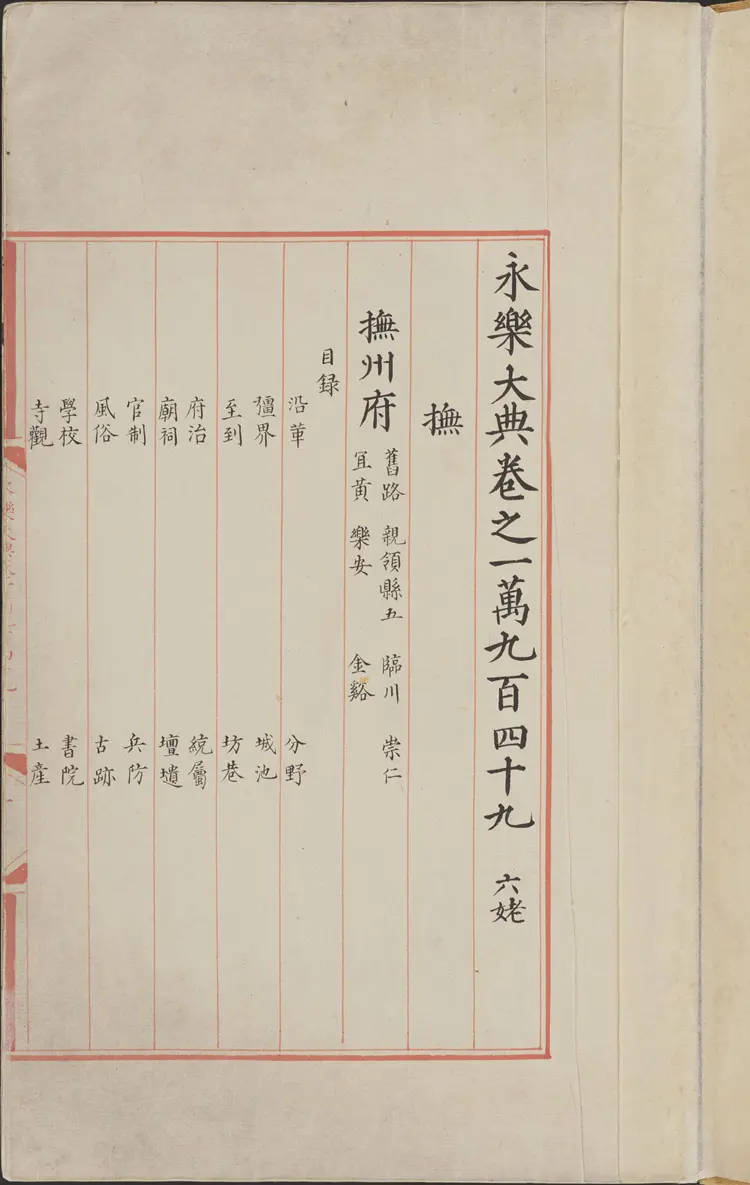 永樂大典卷之一萬九百四十九 六姥
撫
撫州府
舊路 親領縣五 臨川 崇仁
冝黃 樂安 金谿
目録
沿革 分野
彊界 城池
至到 坊巷
府治 統屬
廟祠 壇壝
官制 兵防
風俗 古跡
學校 書院
寺觀 土産